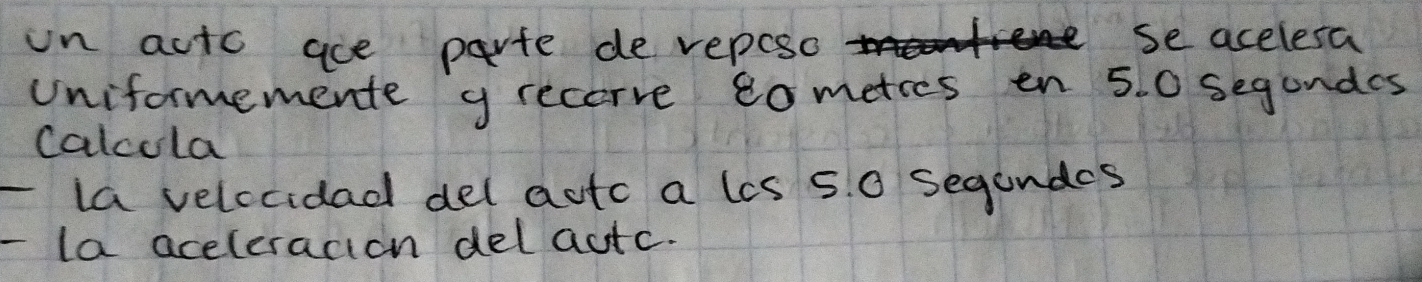 un auto que parte de reposo se acelera
uniformemente y recorre 80 metros en 5.0 segundos
Calcula
- la velocidad del auto a los 5.0 segundos
- la aceleracion del auto.